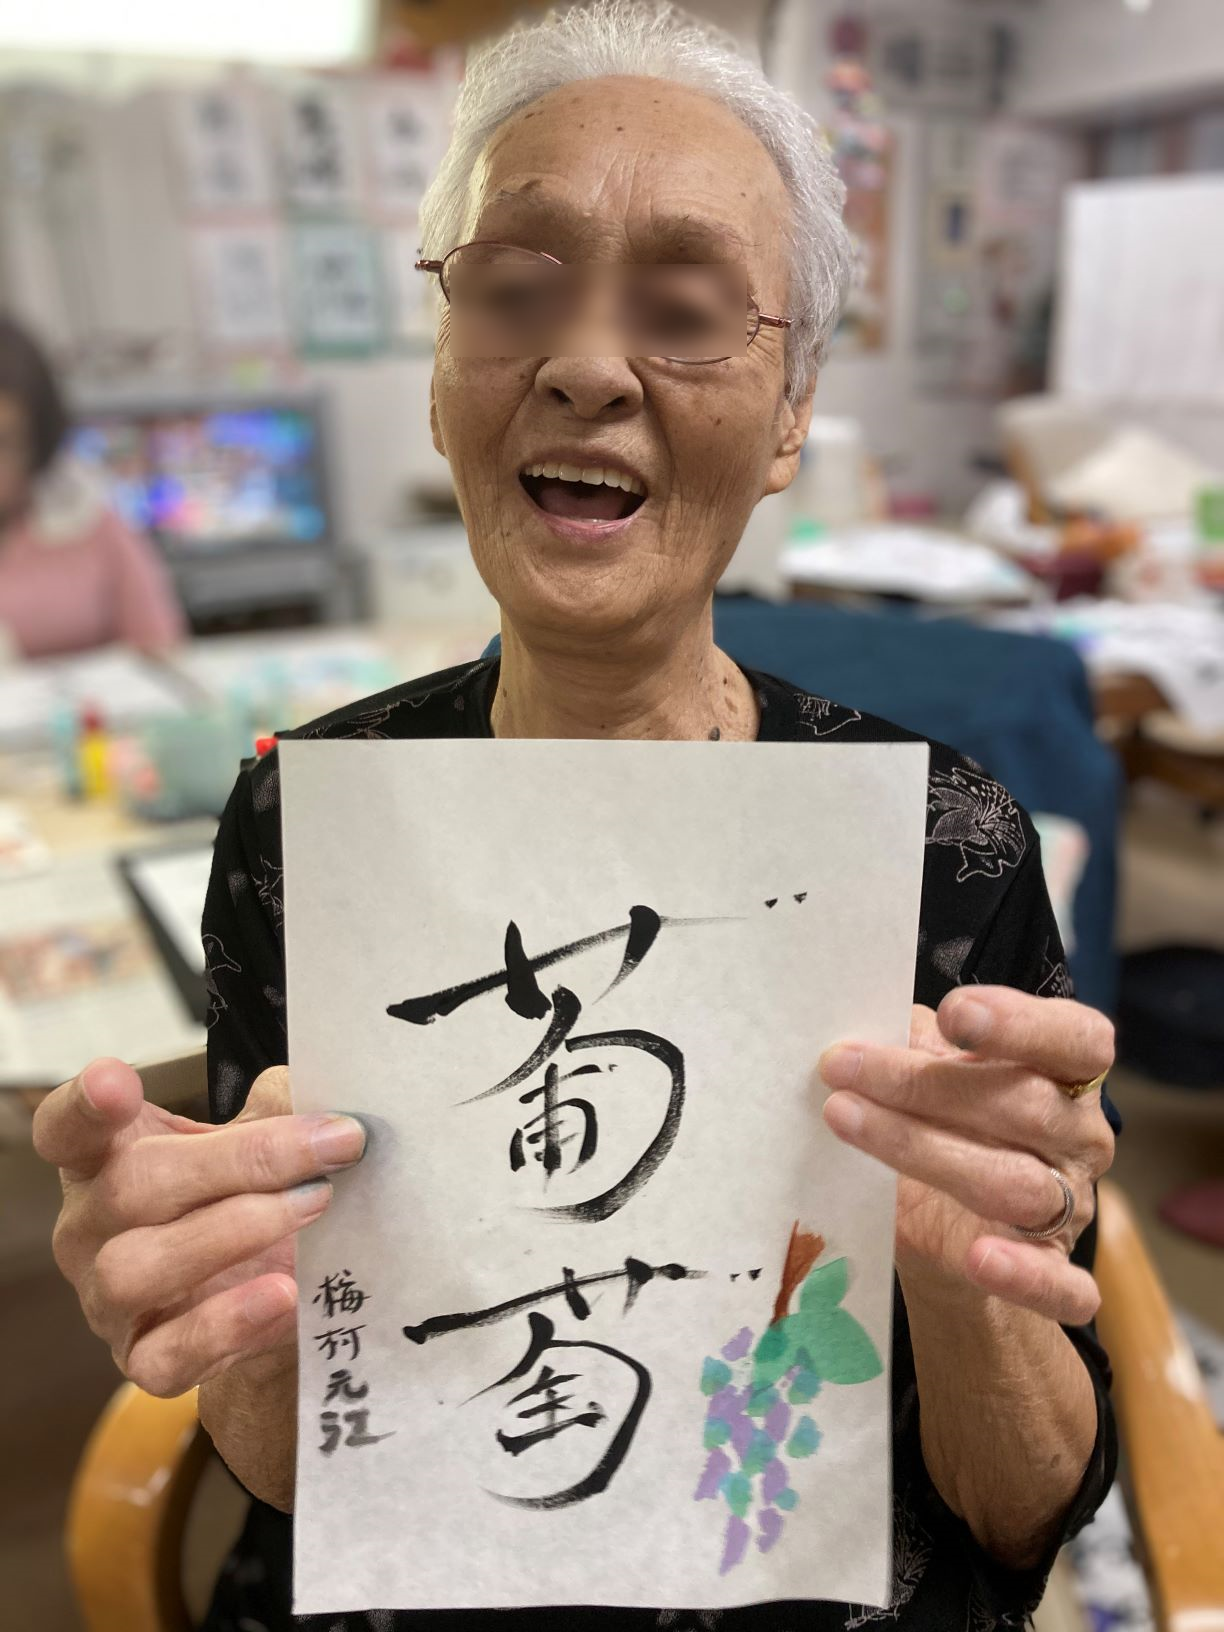 葡
萄
梅村元江